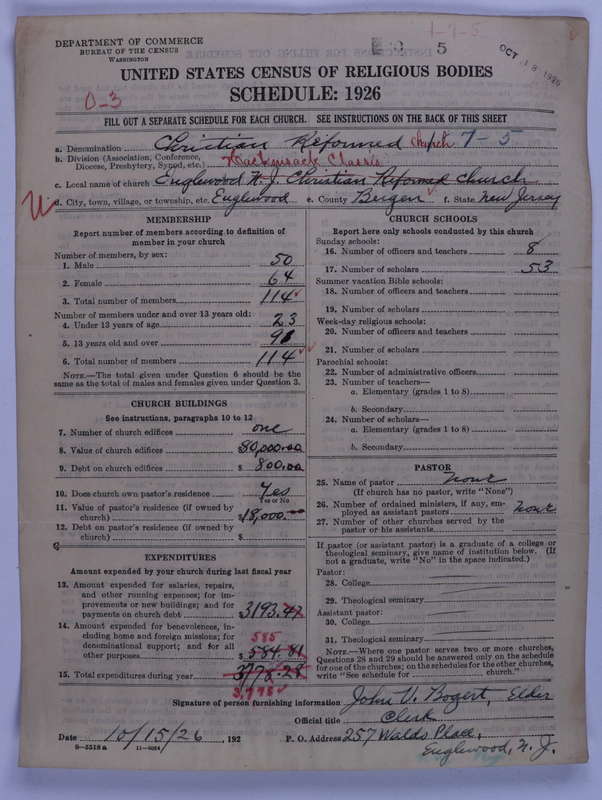 1-7-5
DEPARTMENT OF COMMERCE
BUREAU OF THE CENSUS
WASHINGTON
5
OCT 18 1926
UNITED STATES CENSUS OF RELIGIOUS BODIES
SCHEDULE: 1926
0-3
FILL OUT A SEPARATE SCHEDULE FOR EACH CHURCH. SEE INSTRUCTIONS ON THE BACK OF THIS SHEET
a. Denomination Christian Reformed Church 7-5
b. Division (Association, Conference, Diocese, Presbytery, Synod, etc.) Hackensack Classis
c. Local name of church Englewood N. J. Christian Reformed Church
d. City, town, village, or township, etc. Englewood e. County Bergen f. State New Jersey
MEMBERSHIP
Report number of members according to definition of
member in your church
Number of members, by sex:
1. Male 50
2. Female 64
3. Total number of members 114
Number of members under and over 13 years old:
4. Under 13 years of age 23
5. 13 years old and over 91
6. Total number of members 114
NOTE.—The total given under Question 6 should be
same as the total of males and females given under Question 3.
CHURCH BUILDINGS
See instructions, paragraphs 10 to 12
7. Number of church edifices one
8. Value of church edifices $ 30,000.00
9. Debt on church edifices $ 800.00
10. Does church own pastor's residence Yes
Yes or No
11. Value of pastor's residence (if owned by
church) $ 8,000.00
12. Debt on pastor's residence (if owned by
church) $
EXPENDITURES
Amount expended by your church during last fiscal year
13. Amount expended for salaries, repairs,
and other running expenses; for im-
provements or new buildings; and for
payments on church debt $ 3193.47
14. Amount expended for benevolences, in-
cluding home and foreign missions; for
denominational support; and for all
other purposes $ 584.81
585
15. Total expenditures during year 3778.28
3,778
CHURCH SCHOOLS
Report here only schools conducted by this church
Sunday schools:
16. Number of officers and teachers 8
17. Number of scholars 53
Summer vacation Bible schools:
18. Number of officers and teachers
19. Number of scholars
Week-day religious schools:
20. Number of officers and teachers
21. Number of scholars
Parochial schools:
22. Number of administrative officers
23. Number of teachers—
a. Elementary (grades 1 to 8)
b. Secondary
24. Number of scholars—
a. Elementary (grades 1 to 8)
b. Secondary
PASTOR
25. Name of pastor none
(If church has no pastor, write "None")
26. Number of ordained ministers, if any, em-
ployed as assistant pastors none
27. Number of other churches served by the
pastor or his assistants
If pastor (or assistant pastor) is a graduate of a college or
theological seminary, give name of institution below. (If
not a graduate, write "No" in the space indicated.)
Pastor:
28. College
29. Theological seminary
Assistant pastor:
30. College
31. Theological seminary
NOTE.—Where one pastor serves two or more churches,
Questions 28 and 29 should be answered only on the schedule
for one of the churches; on the schedules for the other churches,
write "See schedule for church."
Signature of person furnishing information John V. Bogert, Elder
Official title Clerk
Date 10/15/26, 192 P. O. Address 257 Waldo Place,
Englewood, N. J.
8-5318a 11-9084